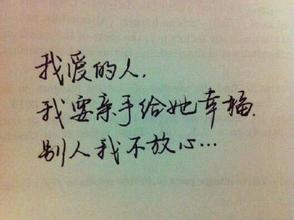 我爱的人,
我要亲手给她幸福.
别人我不放心...